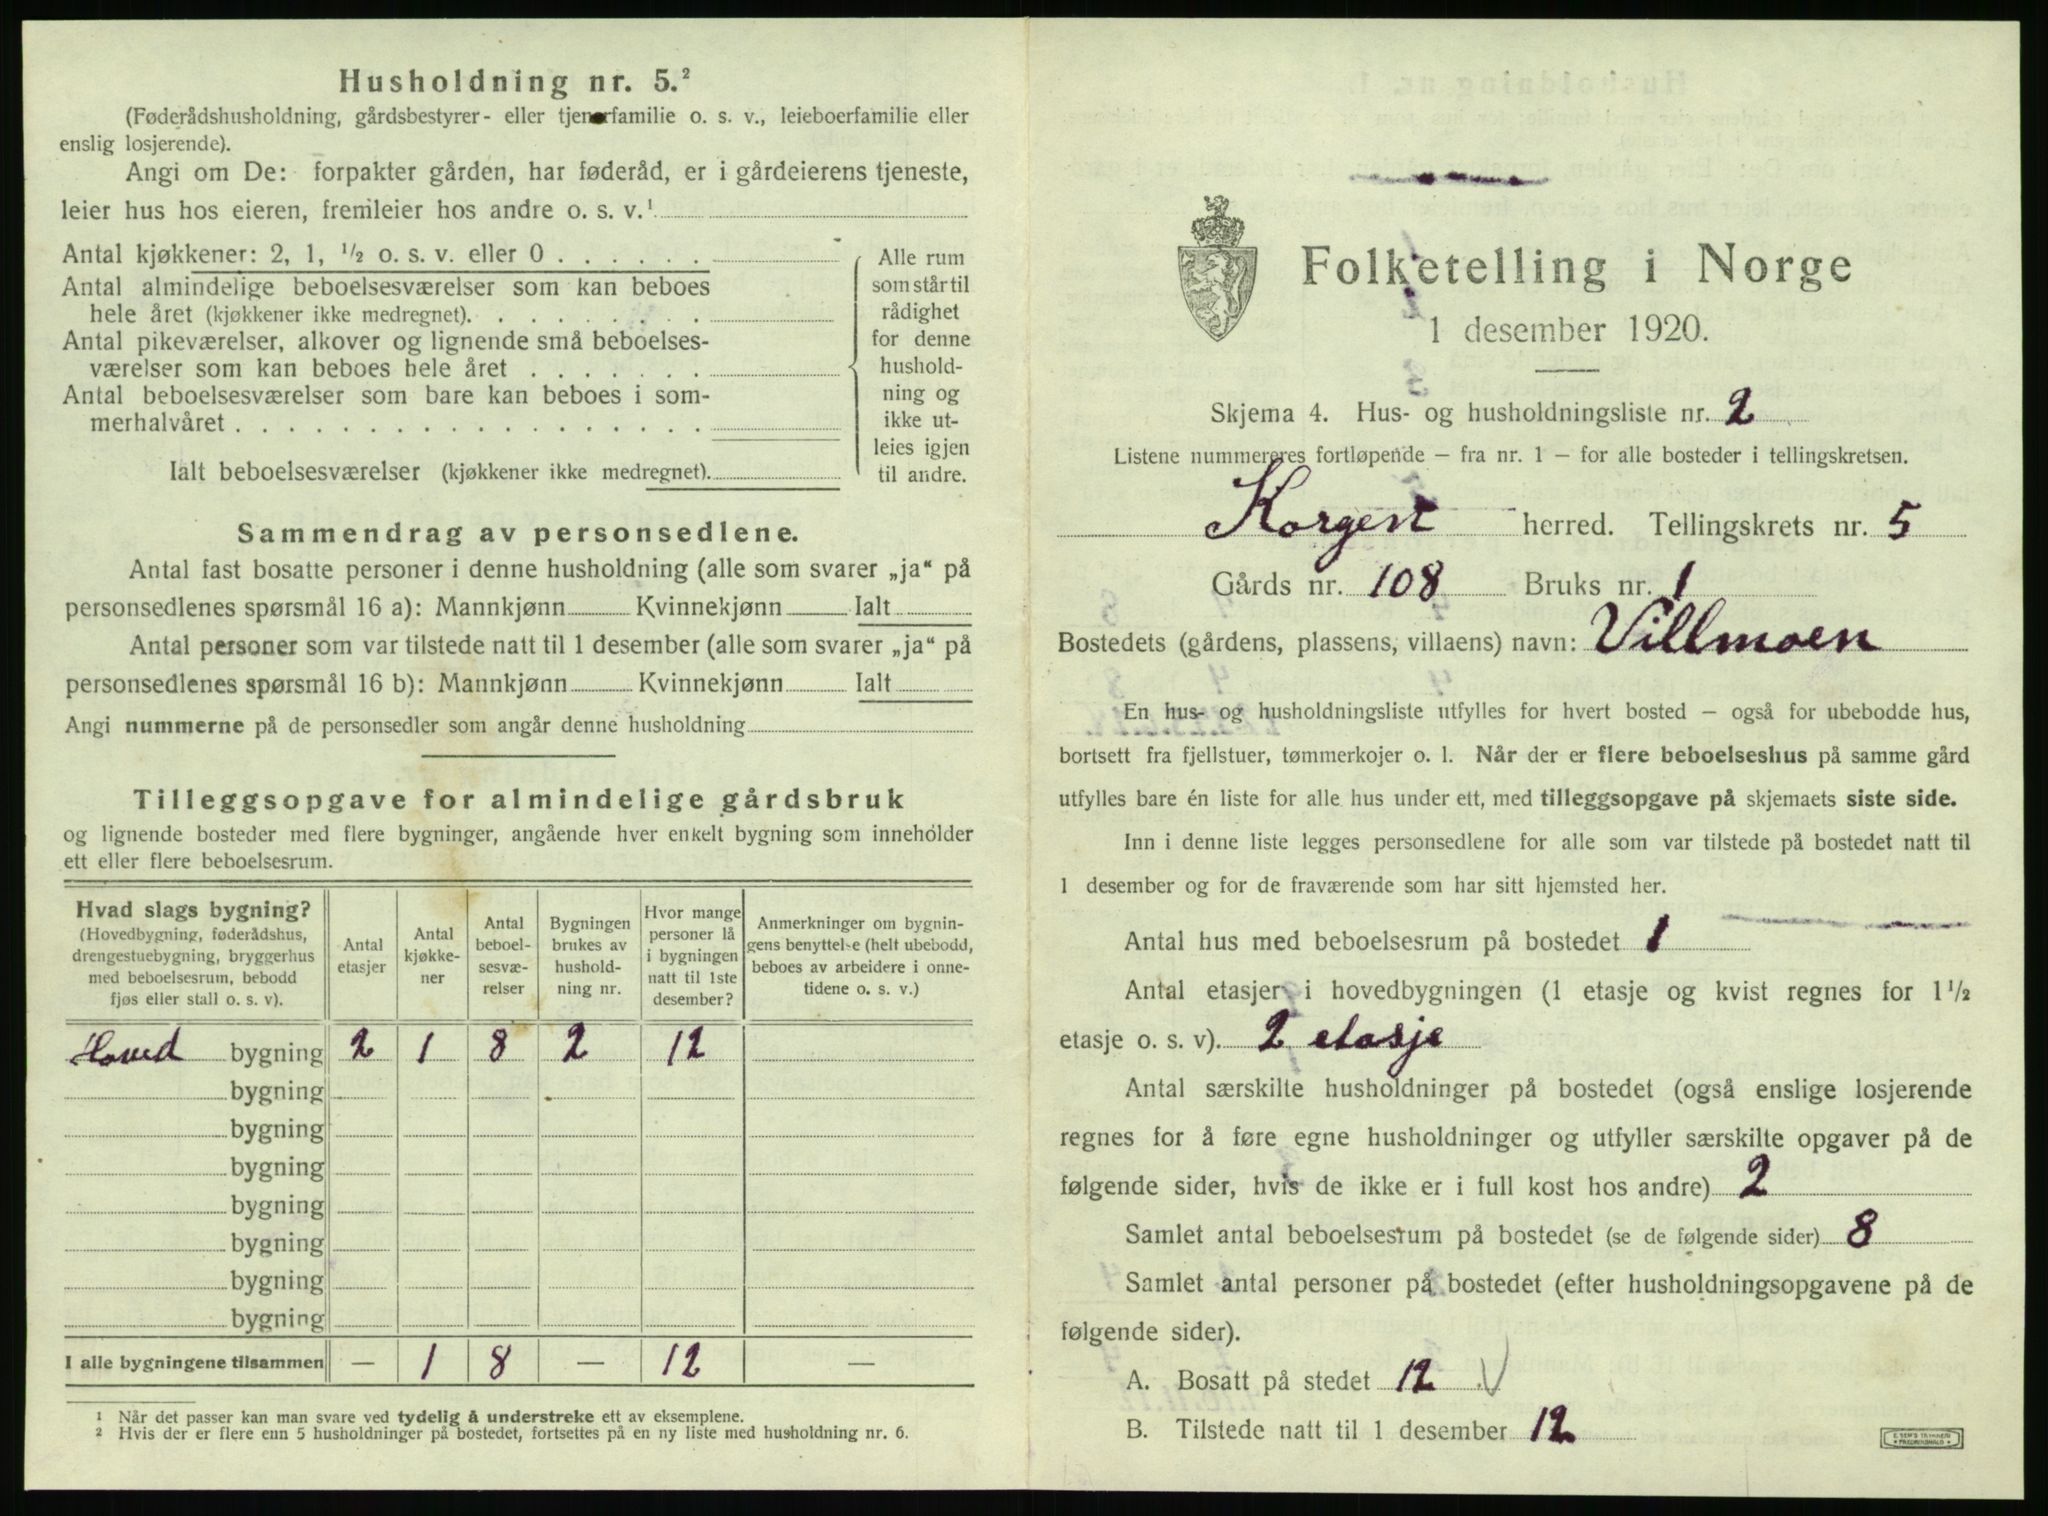 Husholdning nr. 5.²
(Føderådshusholdning, gårdsbestyrer- eller tjenerfamilie o. s. v., leieboerfamilie eller
enslig losjerende).
Angi om De: forpakter gården, har føderåd, er i gårdeierens tjeneste,
leier hus hos eieren, fremleier hos andre o. s. v.¹
Antal kjøkkener: 2, 1, ½ o. s. v. eller 0 . . . . . .
Antal almindelige beboelsesværelser som kan beboes
hele året (kjøkkener ikke medregnet). . . . . . . . .
Antal pikeværelser, alkover og lignende små beboelses-
værelser som kan beboes hele året . . . . . . .
Antal beboelsesværelser som bare kan beboes i som-
merhalvåret . . . . . . . . . . . . . . . . . .
Ialt beboelsesværelser (kjøkkener ikke medregnet).
Alle rum
som står til
rådighet
for denne
hushold-
ning og
ikke ut-
leies igjen
til andre.
Sammendrag av personsedlene.
Antal fast bosatte personer i denne husholdning (alle som svarer „ja“ på
personsedlenes spørsmål 16 a): Mannkjønn Kvinnekjønn Ialt
Antal personer som var tilstede natt til 1 desember (alle som svarer „ja“ på
personsedlenes spørsmål 16 b): Mannkjønn Kvinnekjønn Ialt
Angi nummerne på de personsedler som angår denne husholdning
Tilleggsopgave for almindelige gårdsbruk
og lignende bosteder med flere bygninger, angående hver enkelt bygning som inneholder
ett eller flere beboelsesrum.
Hvad slags bygning?
(Hovedbygning, føderådshus,
drengestuebygning, bryggerhus
med beboelsesrum, bebodd
fjøs eller stall o. s. v).
Antal
etasjer
Antal
kjøkke-
ner
Antal
beboel-
sesvæ-
relser
Bygningen
brukes av
hushold-
ning nr.
Hvor mange
personer lå
i bygningen
natt til 1ste
desember?
Anmerkninger om bygnin-
gens benyttelse (helt ubebodd,
beboes av arbeidere i onne-
tidene o. s. v.)
Hoved bygning 2 1 8 2 12
bygning
bygning
bygning
bygning
bygning
bygning
bygning
I alle bygningene tilsammen — 1 8 — 12 —
¹ Når det passer kan man svare ved tydelig å understreke ett av eksemplene.
² Hvis der er flere enn 5 husholdninger på bostedet, fortsettes på en ny liste med husholdning nr. 6.
Folketelling i Norge
1 desember 1920.
Skjema 4. Hus- og husholdningsliste nr. 2
Listene nummereres fortløpende — fra nr. 1 — for alle bosteder i tellingskretsen.
Korgen herred. Tellingskrets nr. 5
Gårds nr. 108 Bruks nr. 1
Bostedets (gårdens, plassens, villaens) navn: Villmoen
En hus- og husholdningsliste utfylles for hvert bosted — også for ubebodde hus,
bortsett fra fjellstuer, tømmerkojer o. l. Når der er flere beboelseshus på samme gård
utfylles bare én liste for alle hus under ett, med tilleggsopgave på skjemaets siste side.
Inn i denne liste legges personsedlene for alle som var tilstede på bostedet natt til
1 desember og for de fraværende som har sitt hjemsted her.
Antal hus med beboelsesrum på bostedet 1
Antal etasjer i hovedbygningen (1 etasje og kvist regnes for 1½
etasje o. s. v). 2 etasje
Antal særskilte husholdninger på bostedet (også enslige losjerende
regnes for å føre egne husholdninger og utfyller særskilte opgaver på de
følgende sider, hvis de ikke er i full kost hos andre) 2
Samlet antal beboelsesrum på bostedet (se de følgende sider) 8
Samlet antal personer på bostedet (efter husholdningsopgavene på de
følgende sider).
A. Bosatt på stedet 12 √
B. Tilstede natt til 1 desember 12